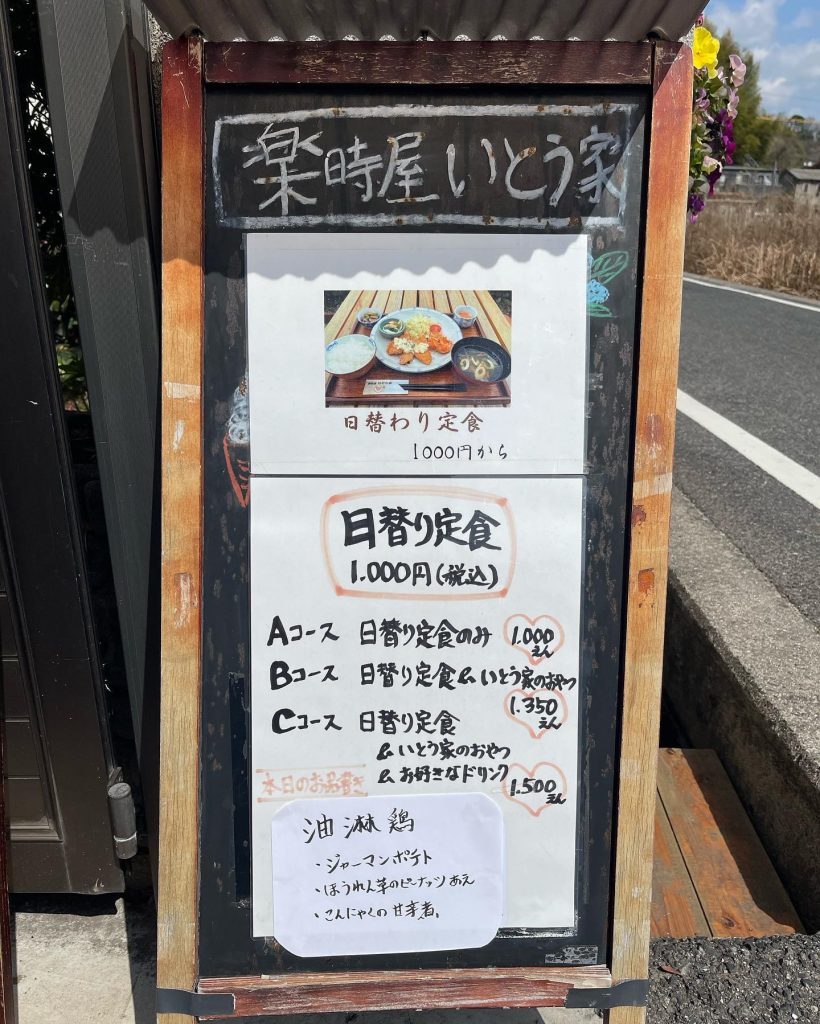 楽時屋いとう家
日替わり定食
1000円から
日替り定食
1.000円(税込)
Aコース 日替り定食のみ 1.000えん
Bコース 日替り定食&いとう家のおやつ
1.350えん
Cコース 日替り定食
&いとう家のおやつ
&お好きなドリンク
1.500えん
本日のお品書き
油淋鶏
・ジャーマンポテト
・ほうれん草のピーナッツあえ
・こんにゃくの甘辛煮。